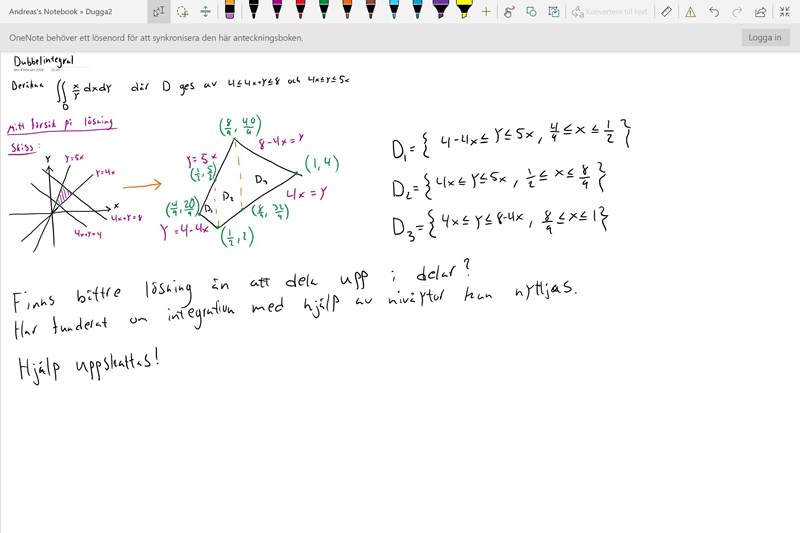 Andreas's Notebook » Dugga2
Konvertera till text
OneNote behöver ett lösenord för att synkronisera den här anteckningsboken.
Logga in
Dubbelintegral
Beräkna ∬_D x/y dxdy där D ges av 4≤4x+y≤8 och 4x≤y≤5x
Mitt försök på lösning
Skiss:
y=5x
y=4x
Y
X
4x+y=8
4x+y=4
(8/9, 40/9)
8-4x=y
y=5x
(1/2, 5/2)
(1,4)
4x=y
D₁
D₂
D₃
(4/9, 20/9)
(8/9, 32/9)
y=4-4x
(1/2, 2)
D₁={ 4-4x≤y≤5x, 4/9≤x≤1/2 }
D₂={ 4x≤y≤5x, 1/2≤x≤8/9 }
D₃={ 4x≤y≤8-4x, 8/9≤x≤1 }
Finns bättre lösning än att dela upp i delar?
Har funderat om integration med hjälp av nivåytor kan nyttjas.
Hjälp uppskattas!